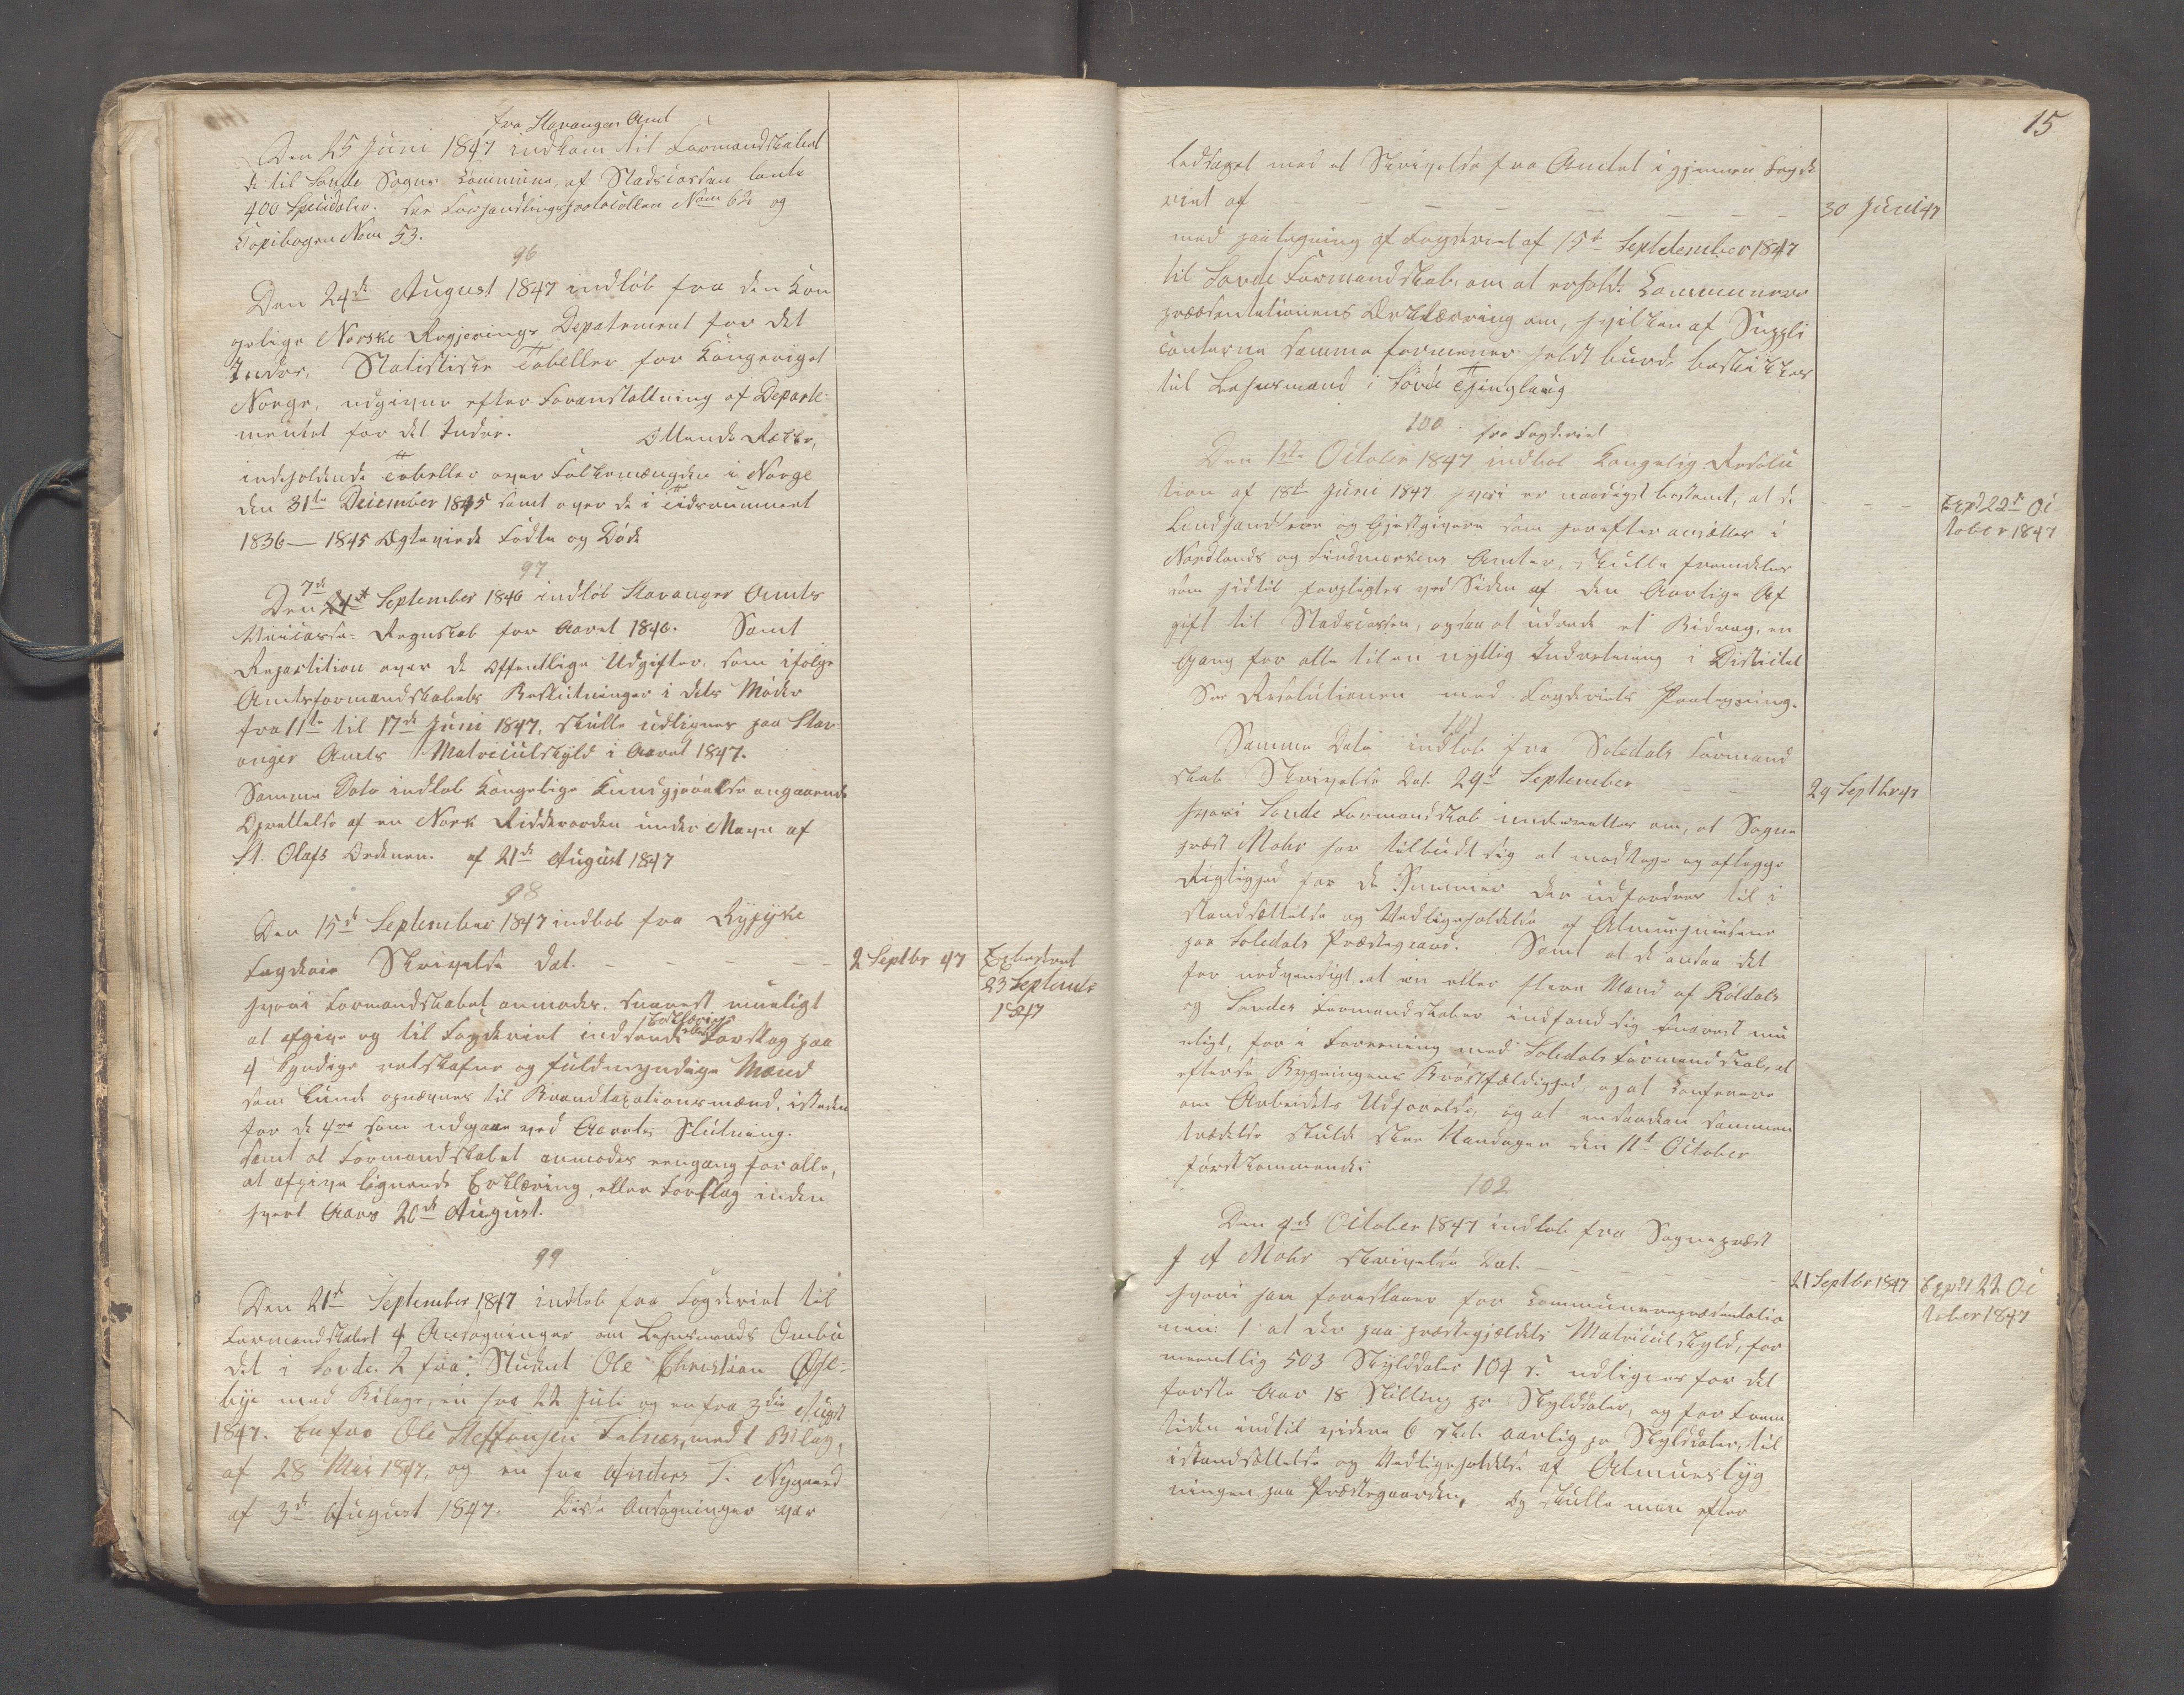 fra Stavanger Amt
Den 25 Juni 1847 indkom til Formandskabet
de til Sande Sogns Commune, af Stadscassen laante
400 Specidaler. See Forhandlingsprotocollen Nom 62 og
Copibogen Nom 53.
96
Den 24de August 1847 indløb fra den Kon
gelige Norske Regjerings Depatement for det
Indre, Statistiske Tabeller for Kongeriget
Norge, udgivne efter Foranstaltning af Departe-
mentet for det Indre. Ottende Række,
indeholdende Tabeller over Folkemængden i Norge
den 31te December 1845 samt over de i Tidsrummet
1836 — 1845 Ægteviede Fødte og Døde
97
Den 7de September 1846 indløb Stavanger Amts
Regnskab for Aaret 1846. Samt
Repartition over de Offentlige Udgifter, som ifølge
Amtsformandskabets Beslutninger i dets Møder
fra 11te til 17de Juni 1847, skulle udlignes paa Stav-
anger Amts Matriculskyld i Aaret 1847.
Samme Dato indløb Kongelige Kundgjørelse angaaende
Oprettelse af en Norsk Ridderorden under Navn af
St. Olafs Ordenen. af 21de August 1847
98
Den 15de September 1847 indløb fra Ryfylke
Fogderie Skrivelse dat. — — — — 2 Septbr 47
hvori Formandskabet anmodes, snarest mueligt
at afgive og til Fogderiet indsende Erklæring eller Forslag paa
4 kyndige retskafne og fuldmyndige Mænd
som kunde opnævnes til Brandtaxationsmænd, isteden
for de 4re som udgaae ved Aarets Slutning.
samt at Formandskabet anmodes eengang for alle,
at afgive lignende Erklæring, eller Forslag inden
hvert Aars 20de August.
23 Septembr
1847
99
Den 21de September 1847 indløb fra Fogderiet til
Formandskabet 4 Ansøgninger om Lehnsmands Ombu
det i Sovde. 2 fra Student Ole Christian
bye med Bilage, en fra 22 Juli og en fra 3die Augst
1847. En fra Ole Steffensen Falnes, med 1 Bilag,
af 28 Mai 1847, og en fra Anders T. Nygaard
af 3de August 1847. Disse Ansøgninger var
15
ledsaget med et Skrivelse fra Amtet igjennem Fogde
riet af — — — — — — 30 Juni 47
med paategning af Fogderiet af 15de Septdember 1847
til Sovde Formandskab, om at erholde Communere
præsentationens Erklæring om, hvilken af Suppli
canterne samme formener heldst burde beskikkes
til Lehnsmand i Sovde Thinglaug
100
fra Fogderiet
Den 1ste October 1847 indkol Kongelig Resolu
tion af 18de Juni 1847 hvori er naadigst bestemt, at de
Landhandlere og Gjestgivere som herefter ansættes i
Nordlands og Findmarkens Amter, skulle fremdeles
som hidtil forpligtes ved Siden af den Aarlige Af
gift til Stadscassen, ogsaa at udrede et Bidrag, en
Gang for alle til en nyttig Indretning i Districtet
See Resolutionen med Fogderiets Paategning.
Expd 22de Oc
tober 1847
101
Samme Dato indløb fra Soledals Formand
skab Skrivelse Dat. 29de September — — 29 Septbr 47
hvori Sovde Formandskab underretter om, at Sogne
præst Mohr har tilbudt sig at modtage og aflegge
Rigtighed for de Summer der udfordres til i
standsættelse og Vedligeholdelse af Almueshusene
paa Soledals Præstegaard. Samt at de ansaa det
for nødvendigt at een eller flere Mænd af Røldals
og Sovdes Formandskaber indfandt sig snarest mu
eligt, for i Forening med Soledals Formandskab, at
efterse Bygningens Brøstfældighed, og at conferere
om Arbeidets Udførelse, og at en saadan Sammen
trædelse skulde skee Mandagen den 11te October
førstkommende.
102
Den 4de October 1847 indløb fra Sognepræst
J A Mohr Skrivelse Dat. — — — — 21 Septbr 1847
hvori han foreslaaer for Communerepræsentatio
nen: 1 at der paa præstegjældets Matriculskyld, for
meentlig 503 Skylddaler 104 s. udlignes for det
første Aar 18 Skilling pr Skylddaler, og for Frem
tiden indtil videre 6 sk. aarlig pr Skylddaler, til
istandsættelse og Vedligeholdelse af Almuesbyg
ningen paa Præstegaarden, og skulle man efter
Expdt 22 Oc
tober 1847